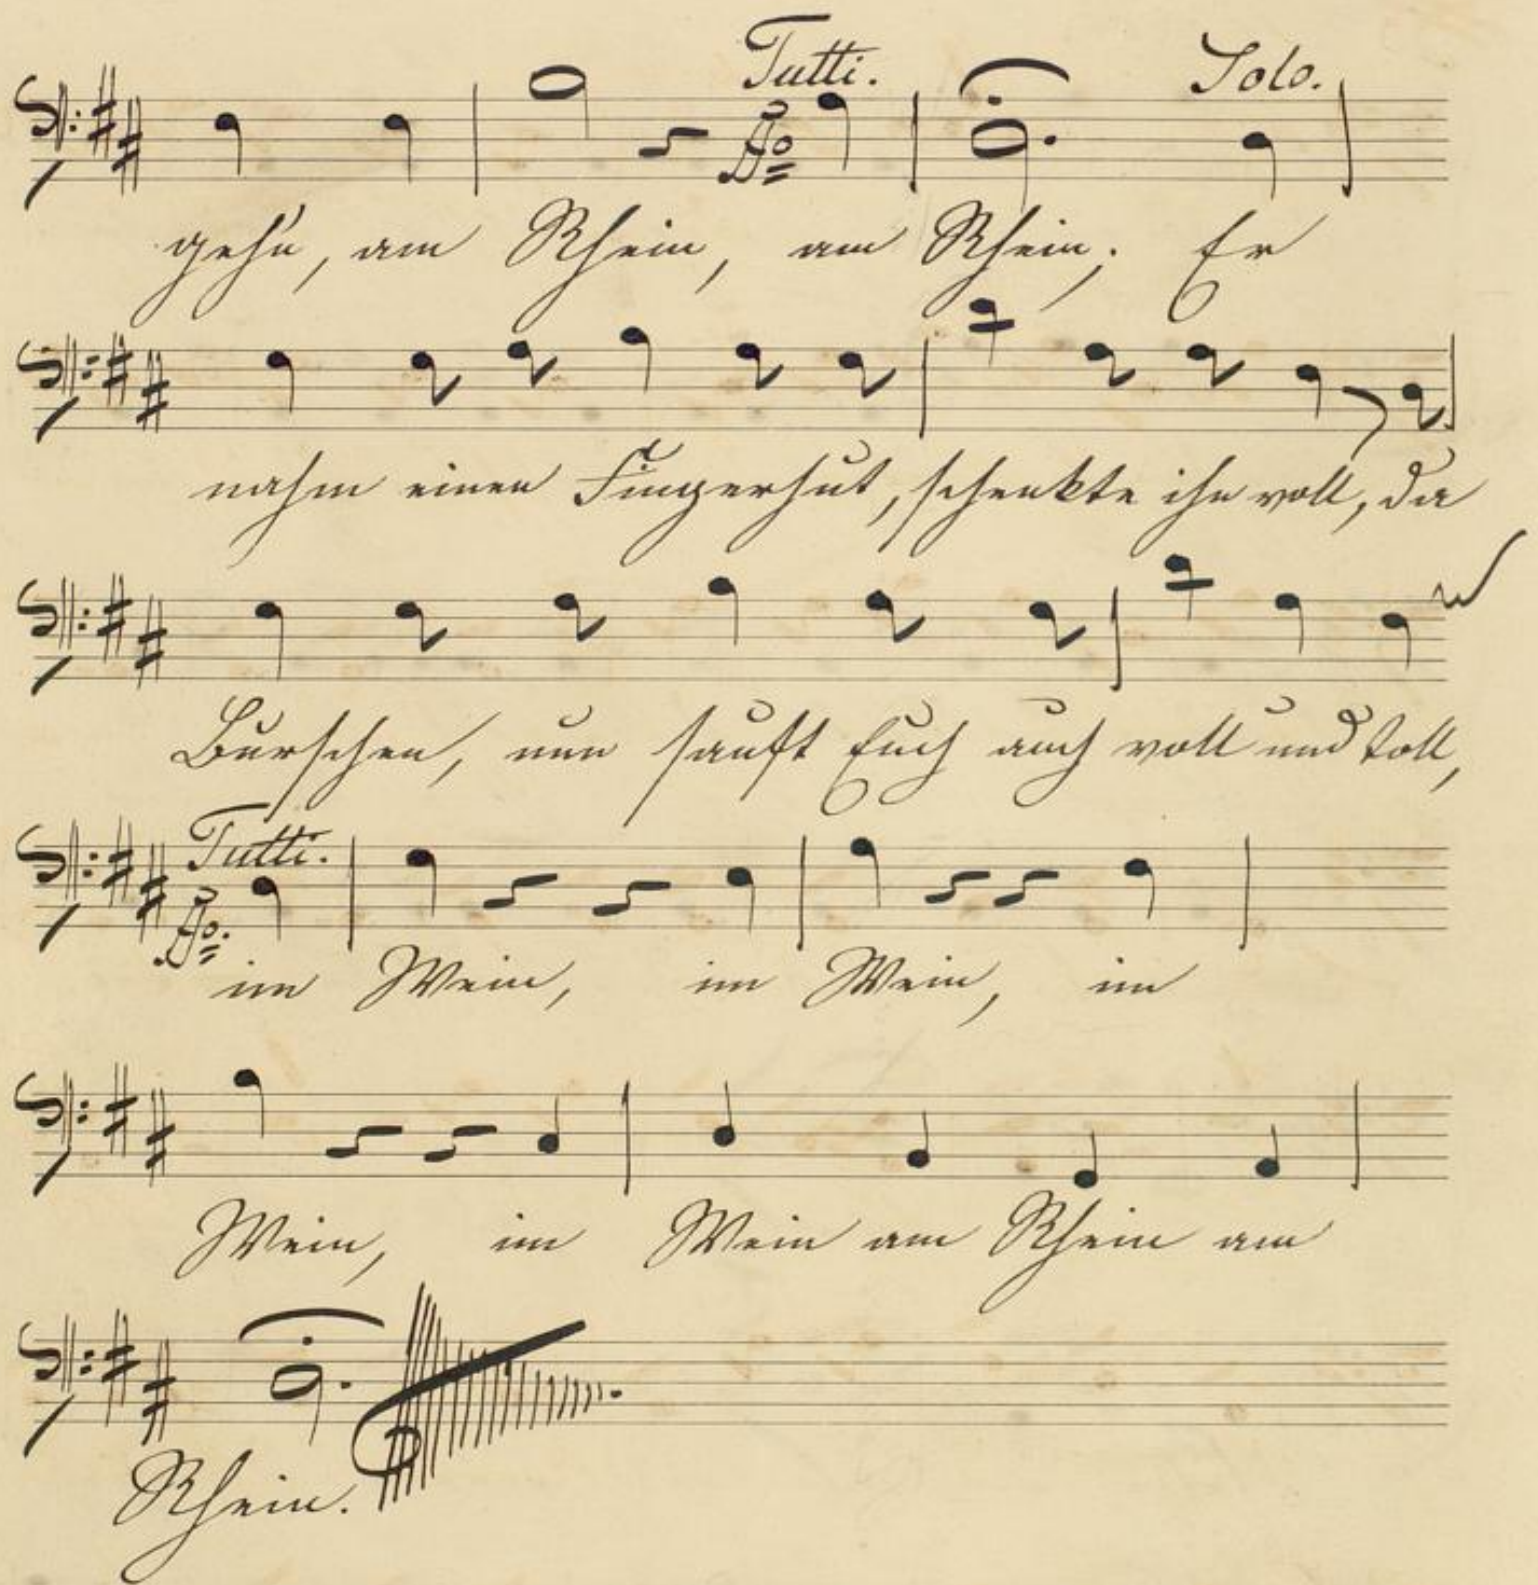 Tutti. Solo.
fo
gehn, am Rhein, am Rhein; Er
nahm einen Fingerhut, schenkte ihn voll, da
Burschen, nun sauft Euch auch voll und toll,
Tutti.
fo.
im Wein, im Wein, im
Wein, im Wein am Rhein am
Rhein.